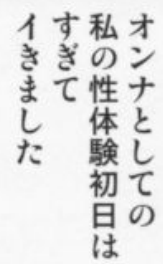 オンナとしての
私の性体験初日は
すぎて
イきました